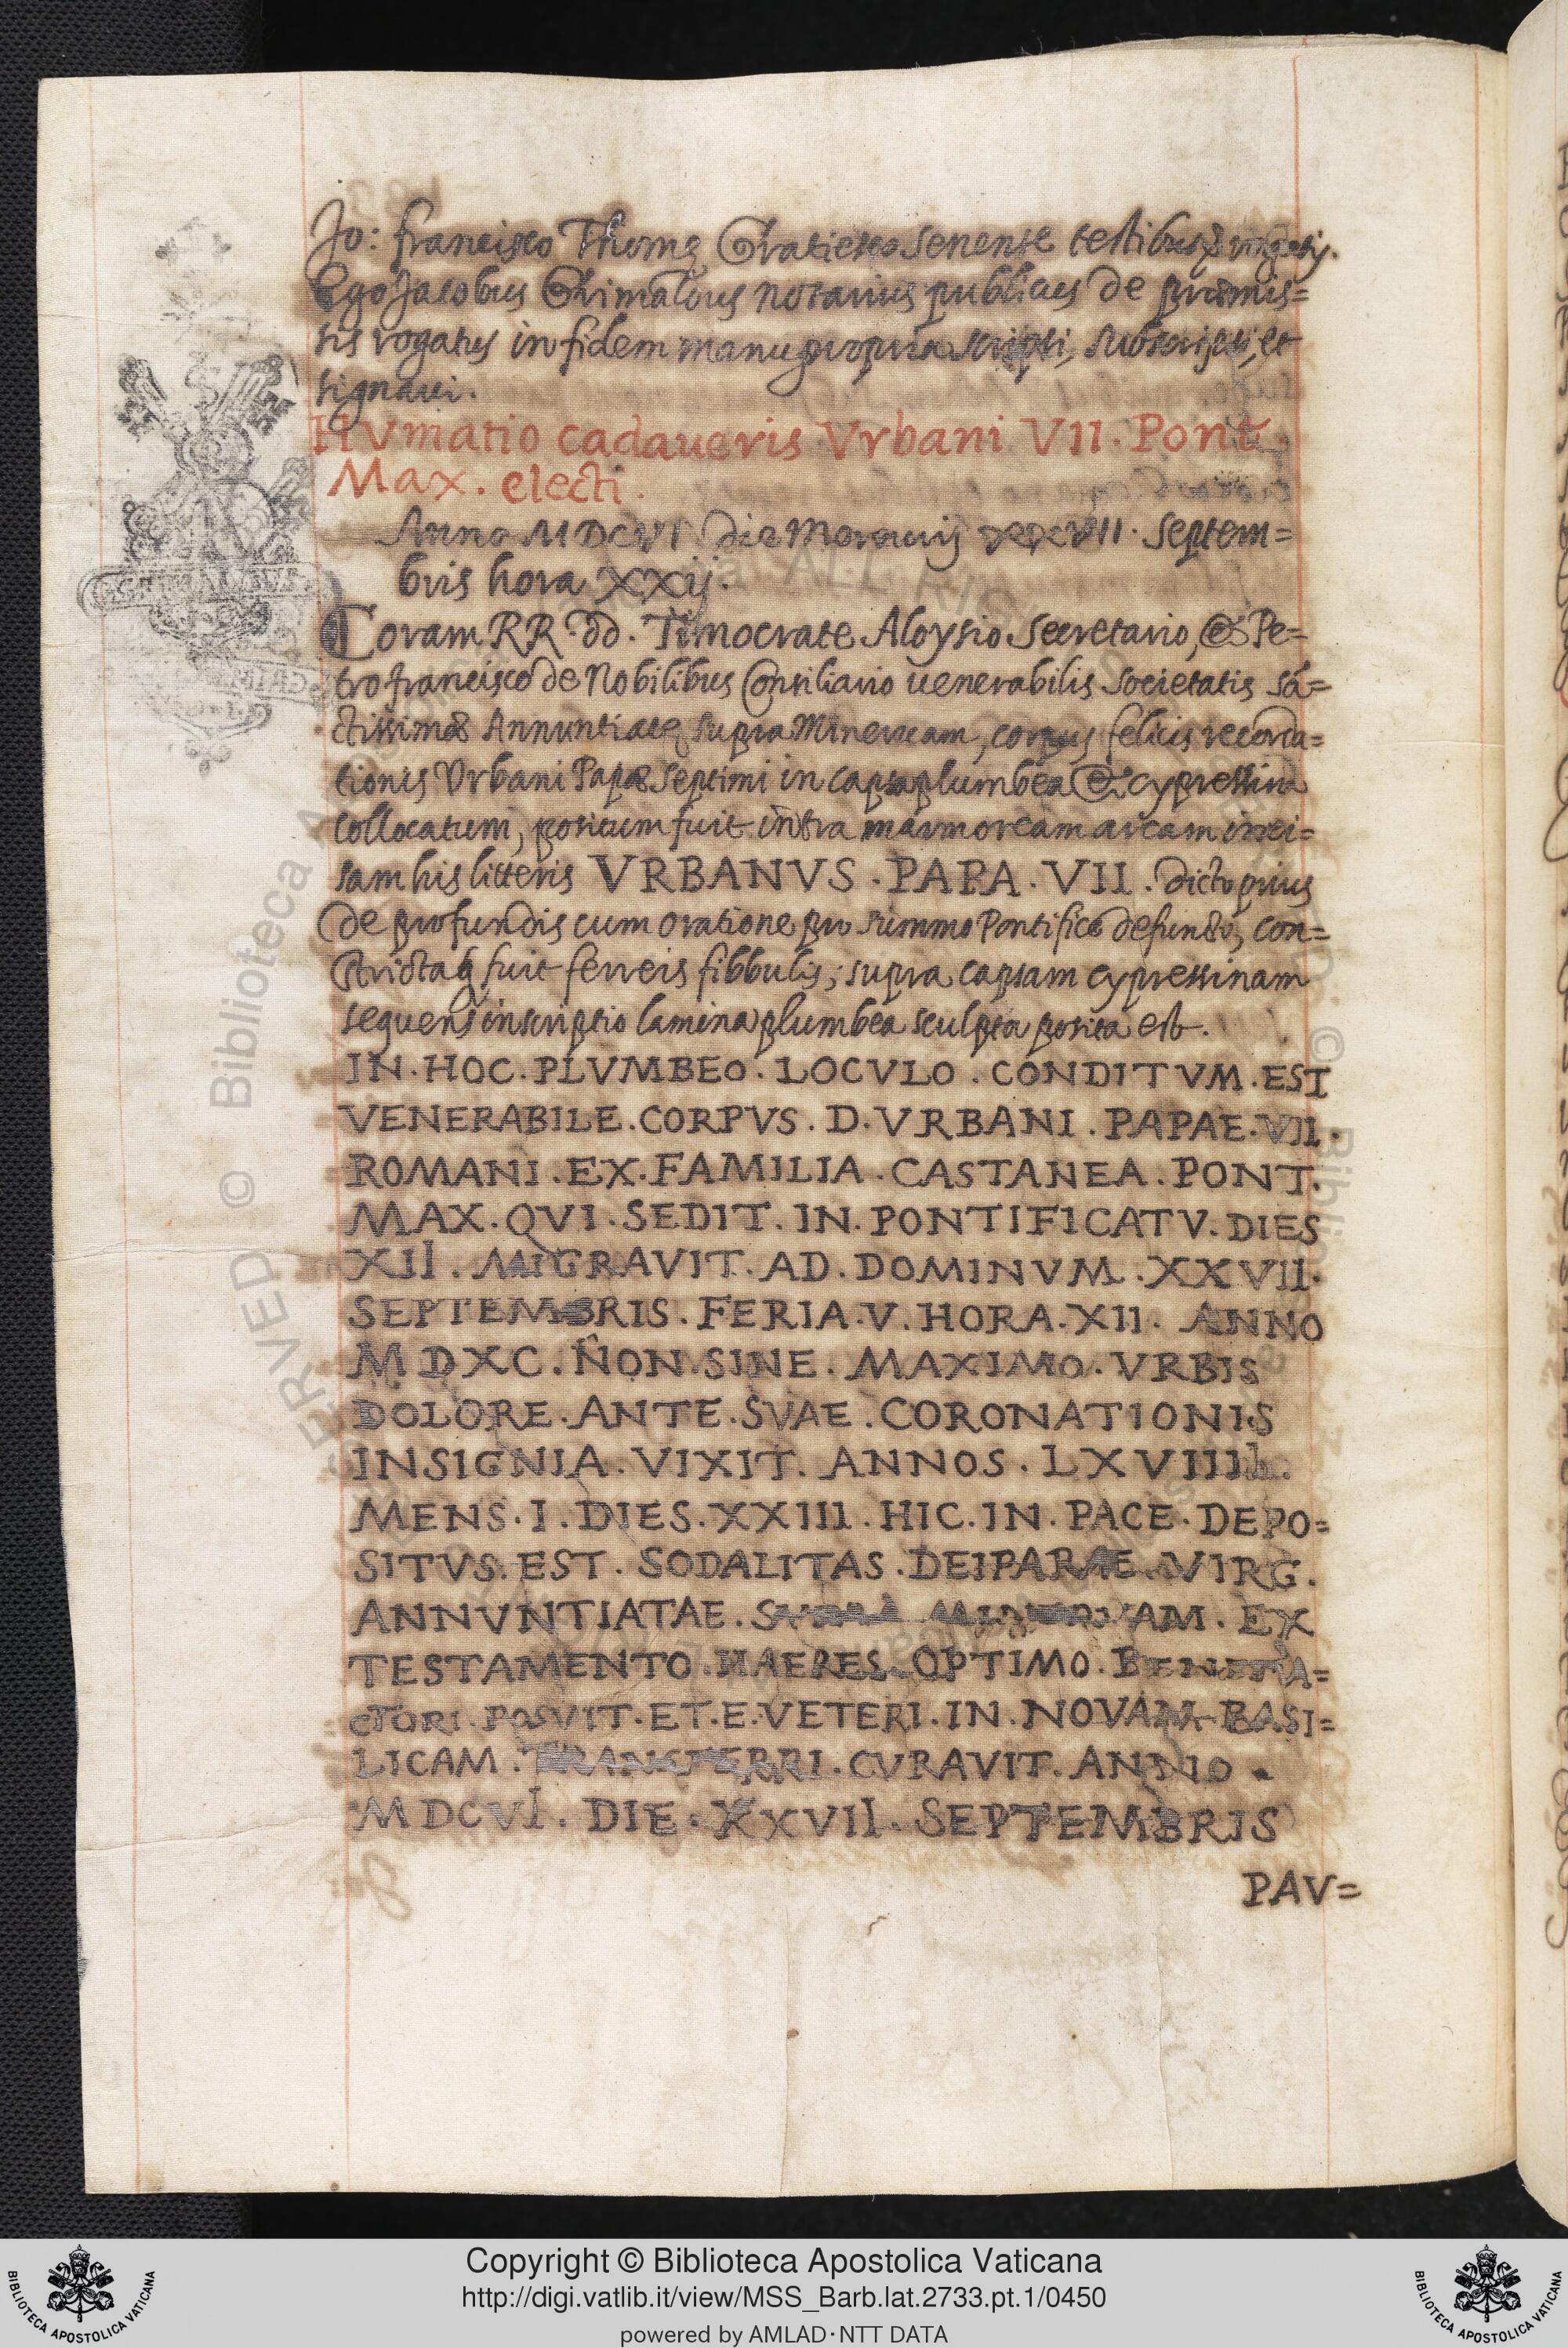 Jo: Francisco Thomę Gratieno Senense testibus
Ego Jacobus Grimaldus notarius publicus de præmis=
sis rogatus in fidem manu propria scripsi, subscripsi, et
signavi.
HVmatio cadaueris Vrbani VII. Pont
Max. electi.
Anno MDCVI die Mercurij XXVII. Septem=
bris hora XXij.
Coram RR. dd. Timocrate Aloysio Secretario, & Pe=
tro francisco de Nobilibus Consiliario uenerabilis Societatis Sā=
ctissimæ Annuntiatę supra Mineruam, corpus felicis recorda=
tionis Vrbani Papæ Septimi in capsa plumbea & cypressina
collocatum, positum fuit intra marmoream arcam inci=
sam his litteris VRBANVS . PAPA . VII . dicto prius
de profundis cum oratione pro summo Pontifice defuncto, con=
strictaq fuit ferreis fibbulis; supra capsam cypressinam
sequens inscriptio lamina plumbea sculpta posita est.
IN . HOC . PLVMBEO . LOCVLO . CONDITVM . EST
VENERABILE . CORPVS . D . VRBANI . PAPAE . VII .
ROMANI . EX . FAMILIA . CASTANEA . PONT .
MAX . QVI . SEDIT . IN . PONTIFICATV . DIES
XII . MIGRAVIT . AD . DOMINVM . XXVII .
SEPTEMBRIS . FERIA . V . HORA . XII . ANNO
MDXC . NON . SINE . MAXIMO . VRBIS
DOLORE . ANTE . SVAE . CORONATIONIS
INSIGNIA . VIXIT . ANNOS . LXVIIII .
MENS . I . DIES . XXIII . HIC . IN . PACE . DEPO=
SITVS . EST . SODALITAS . DEIPARAE . VIRG .
ANNVNTIATAE . SVPRA MINERVAM . EX
TESTAMENTO . HAERES . OPTIMO . BENEFA=
CTORI . POSVIT . ET . E . VETERI . IN . NOVAM . BASI=
LICAM . TRANSFERRI . CVRAVIT . ANNO .
MDCVI . DIE . XXVII . SEPTEMBRIS
PAV=
Copyright © Biblioteca Apostolica Vaticana
http://digi.vatlib.it/view/MSS_Barb.lat.2733.pt.1/0450
powered by AMLAD·NTT DATA
BIBLIOTECA APOSTOLICA VATICANA
BIBLIOTECA APOSTOLICA VATICANA